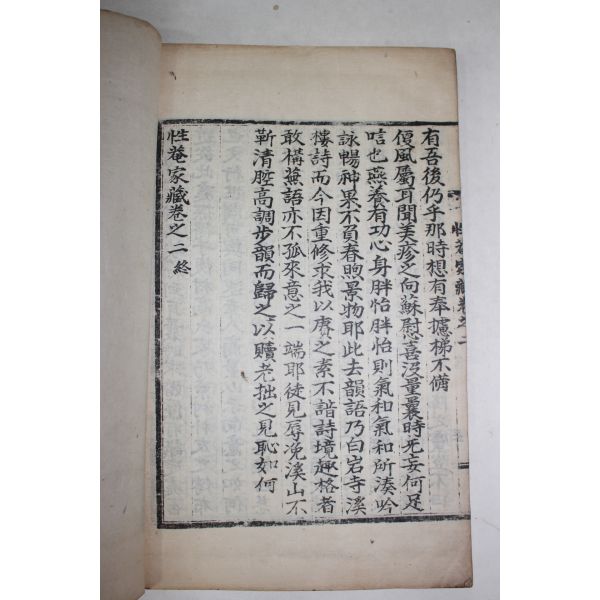 有吾後仍乎那時想有奉攄梯不備
便風屬耳聞美疹之向蘇慰喜沒量曩時旡妄何足
唁也燕養有功心身胖怡胖怡則氣和氣和所湊吟
詠暢神果不負春煦景物耶此去韻語乃白岩寺溪
樓詩而今因重修求我以賡之素不諳詩境趣格者
敢搆蕪語亦不孤來意之一端耶徒見辱浼溪山不
靳清腔高調步韻而歸之以贖老拙之見恥如何
性菴家藏卷之二 終
性菴家藏卷之二